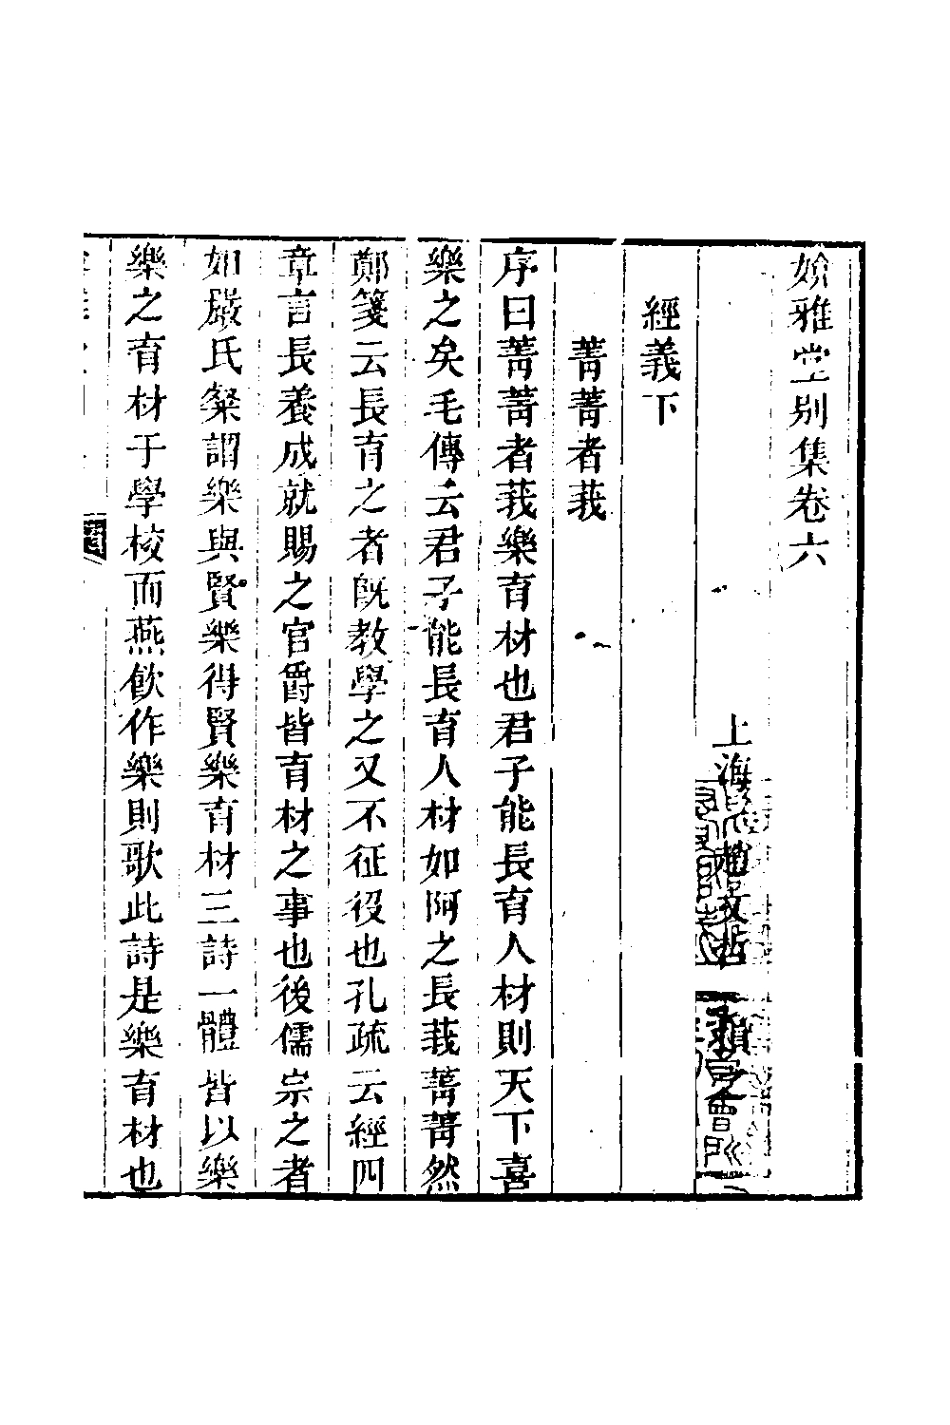 媕雅堂別集卷六
上海 趙文哲 損之
經義下
菁菁者莪
序曰菁菁者莪樂育材也君子能長育人材則天下喜
樂之矣毛傳云君子能長育人材如阿之長莪菁菁然
鄭箋云長育之者旣教學之又不征役也孔疏云經四
章言長養成就賜之官爵皆育材之事也後儒宗之者
如嚴氏粲謂樂與賢樂得賢樂育材三詩一體皆以樂
樂之育材于學校而燕飮作樂則歌此詩是樂育材也